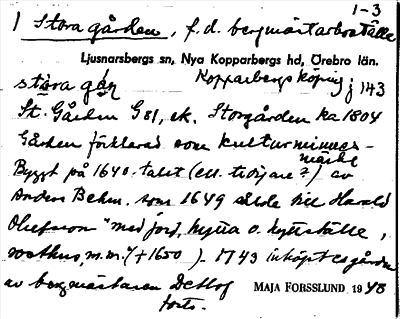 1-3
1 Stora gården, f.d. bergmästarboställe
Ljusnarsbergs sn, Nya Kopparbergs hd, Örebro län.
Kopparbergs köping j 143
stora gån
St. Gården G 81, ek. Storgården ka 1804
Gården förklarad som kulturminnes-
märke
Byggt på 1640-talet (ell. tidigare?) av
Anders Behm, som 1649 sålde till Harald
Olufsson "med jord, hytta o. hyttställe,
rosthus, m.m. († 1650). 1743 inköptes gården
av bergmästaren Detlof
forts.
MAJA FORSSLUND 1948